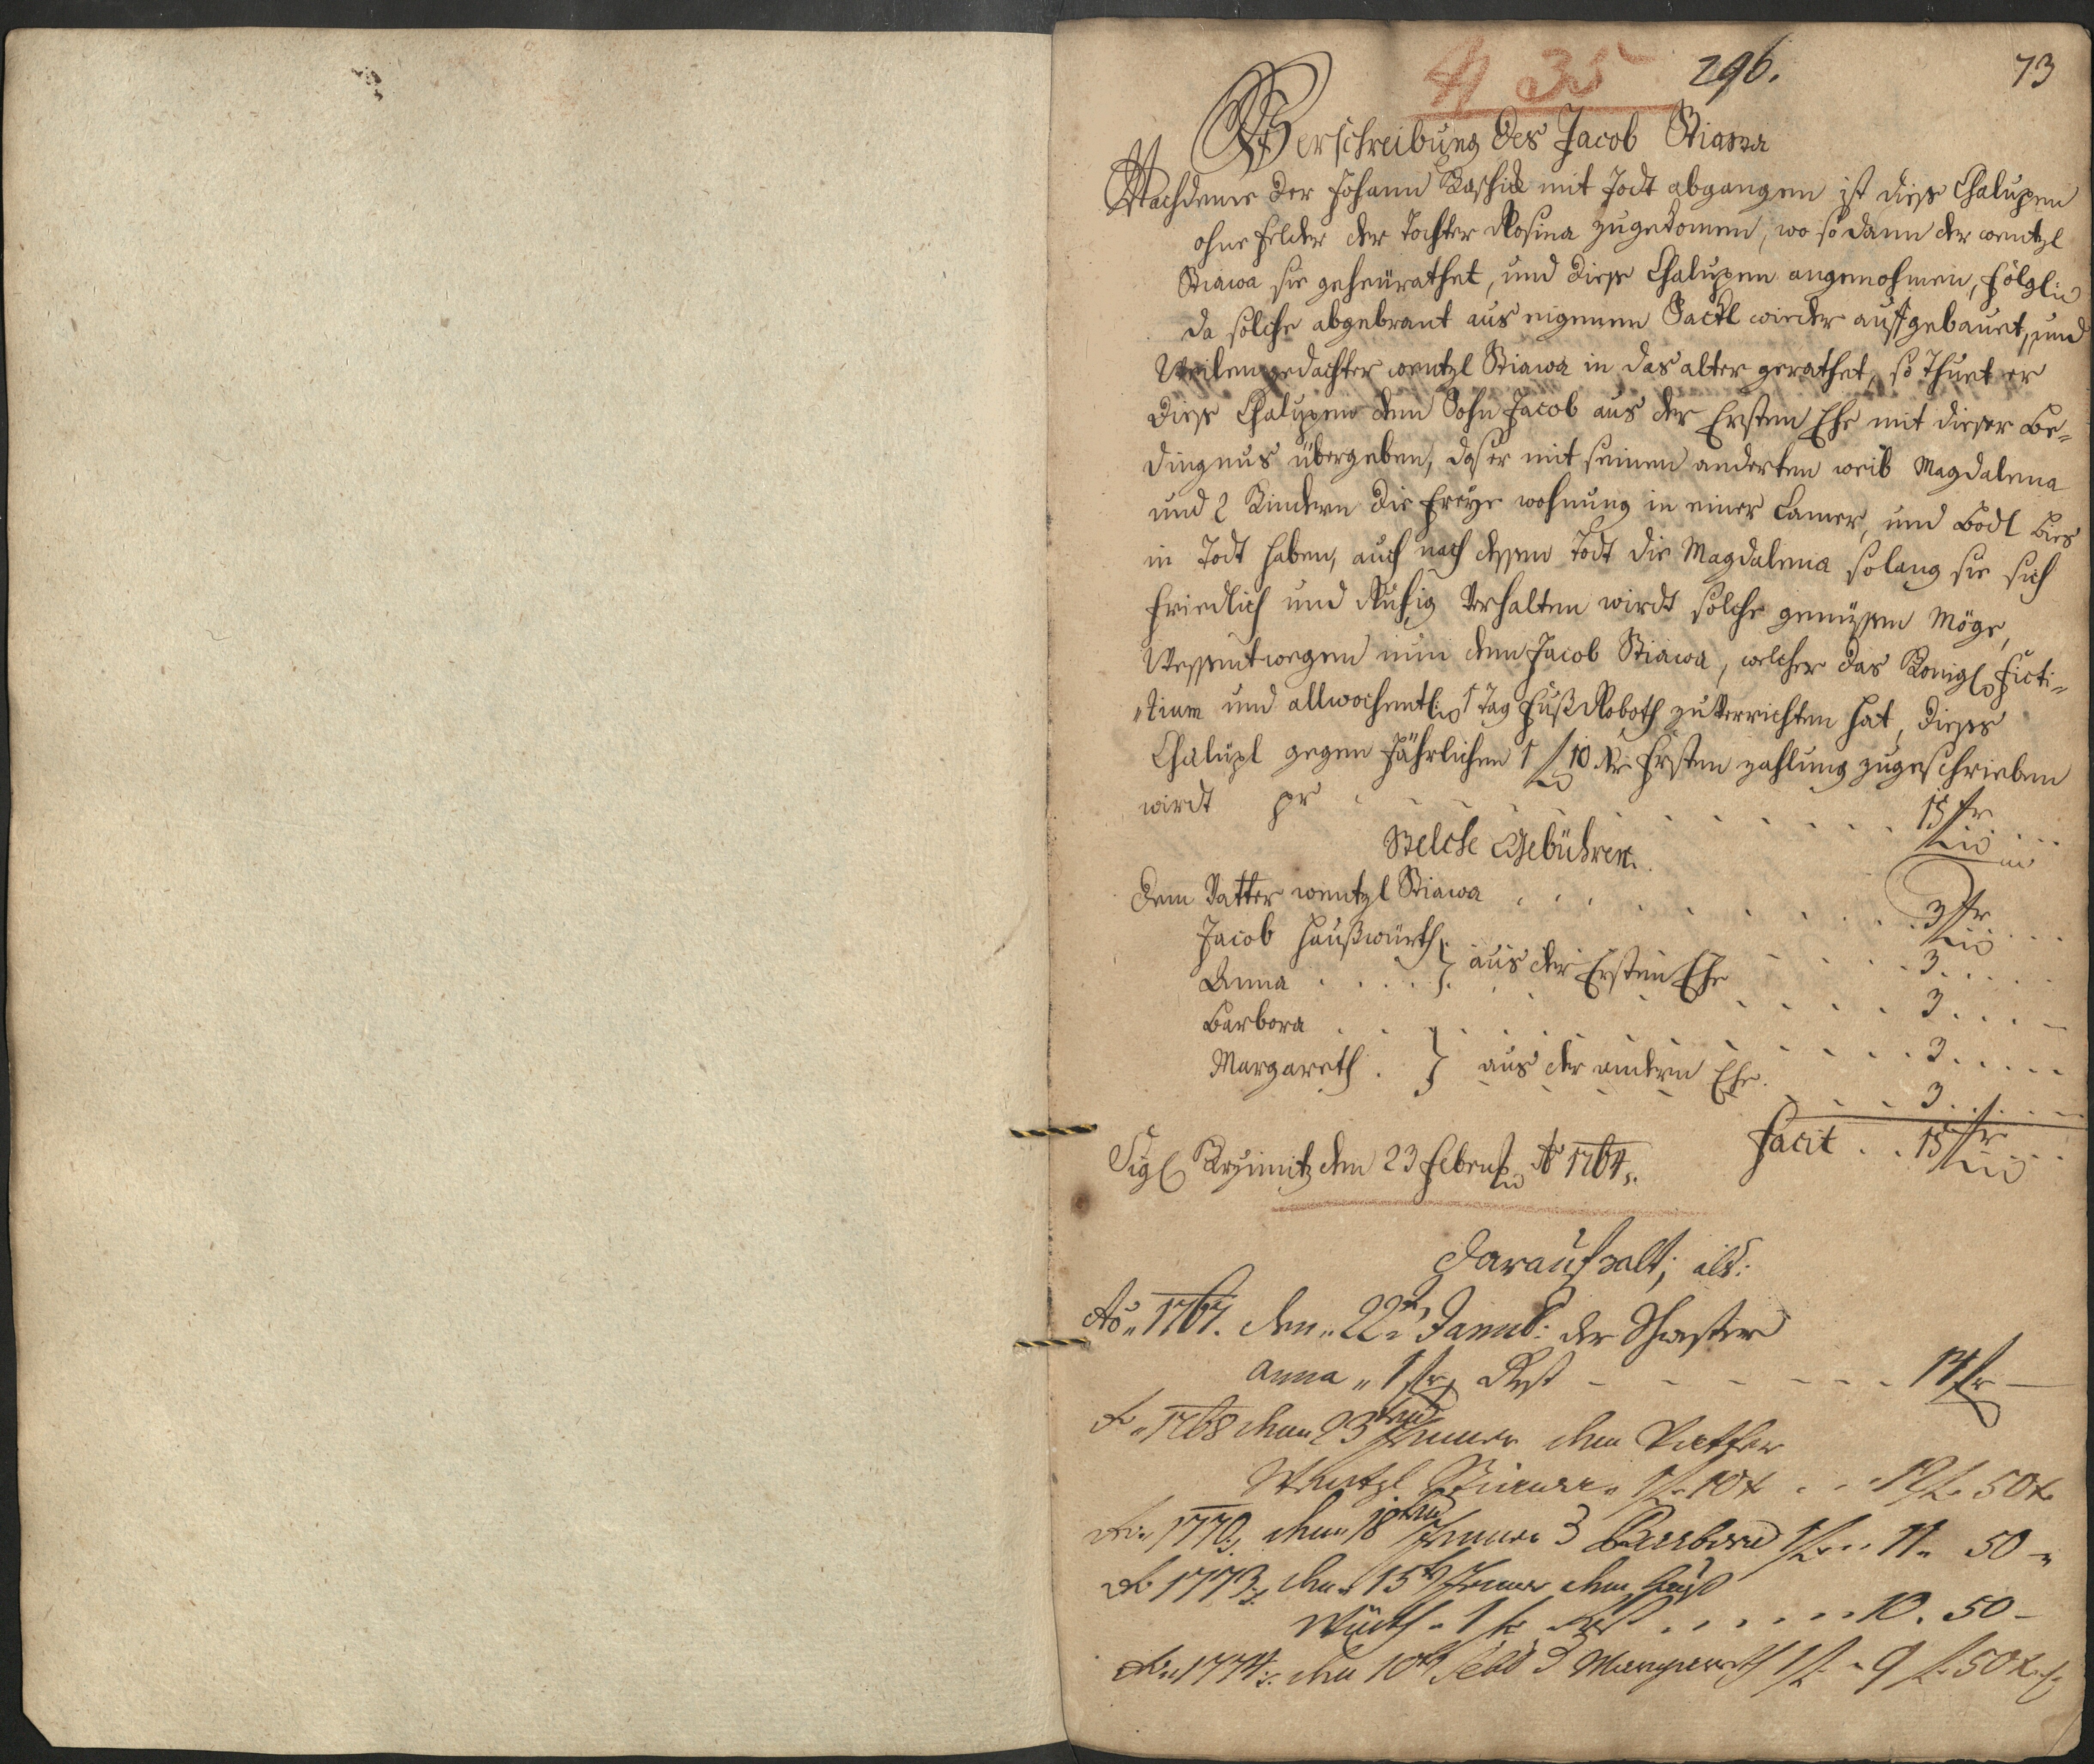 N 35 296. 73
Verschreibung des Jacob Stiawa
Nachdeme der Johann Kaschick mit Todt abgangen ist diese Chalupen
ohne Felder der Tochter Rosina zugekomen, wo so dann der wentzl
Stiawa sie geheurathet, und diese Chalupen angenohmen, folglich
da solche abgebrant aus eigenem Säckl wieder aufgebauet, und
Weilen gedachter wentzl Stiawa in das alter gerathet, so Thuet er
diese Chalupen dem Sohn Jacob aus der Ersten Ehe mit dieser Be-
dingnus übergeben, das er mit seinem anderten weib Magdalena
und 2 Kindern die Freye wohnung in einer Camer, und Bodl bies
in Todt haben, auch nach dessen Todt die Magdalena solang sie sich
Friedlich und Ruhig Verhalten wirdt solche genüssen Möge,
Wessentwegen nun dem Jacob Stiawa, welcher das Königl Ficti-
"tium und allwochentlich 1 Tag Fuß Roboth zu Verrichten hat, dieses
Chalupl gegen Jährlichen 1 f 10 Xr Ersten zahlung zugeschrieben
wirdt pr . . . 15 fr
Welche Gebühren.
dem Vatter wentzl Stiawa . . . 3 fr
Jacob Haußwürth
Anna . . . } aus der Ersten Ehe . . . 3 . . .
3 . . .
Barbora . . .
Margareth . } aus der andern Ehe . . . 3 . . .
3 . . .
Facit . . 15 fr
Sigl Krzimitz den 23 Febru Ao 1764.
Darauf zalt, als:
Ao 1767. den 22ten Janua: der Schwester
Anna " 1 fr Rest - - - 14 fr -
Ao 1768 den 23ten Jenner dem Vatter
Wentzl Stiawa 1 f 10 x . . 12 f 50 x
Ao 1770. den 18ten Jenner d Barbora 1 f . . 11 . 50 -
Ao 1773. den 15t Jenner dem Hauß
Würth - 1 fr Rest . . . . 10 . 50 -
Ao 1774. den 10t Feb d Margareth 1 f - 9 f 50 x